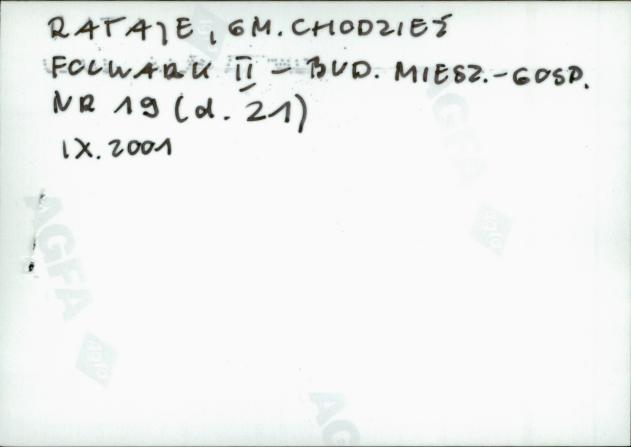 RATAJE, GM. CHODZIEŻ
FOLWARK II – BUD. MIESZ.-GOSP.
NR 19 (d. 21)
IX. 2001
AGFA
AGFA
AGFA
AGFA
AGFA